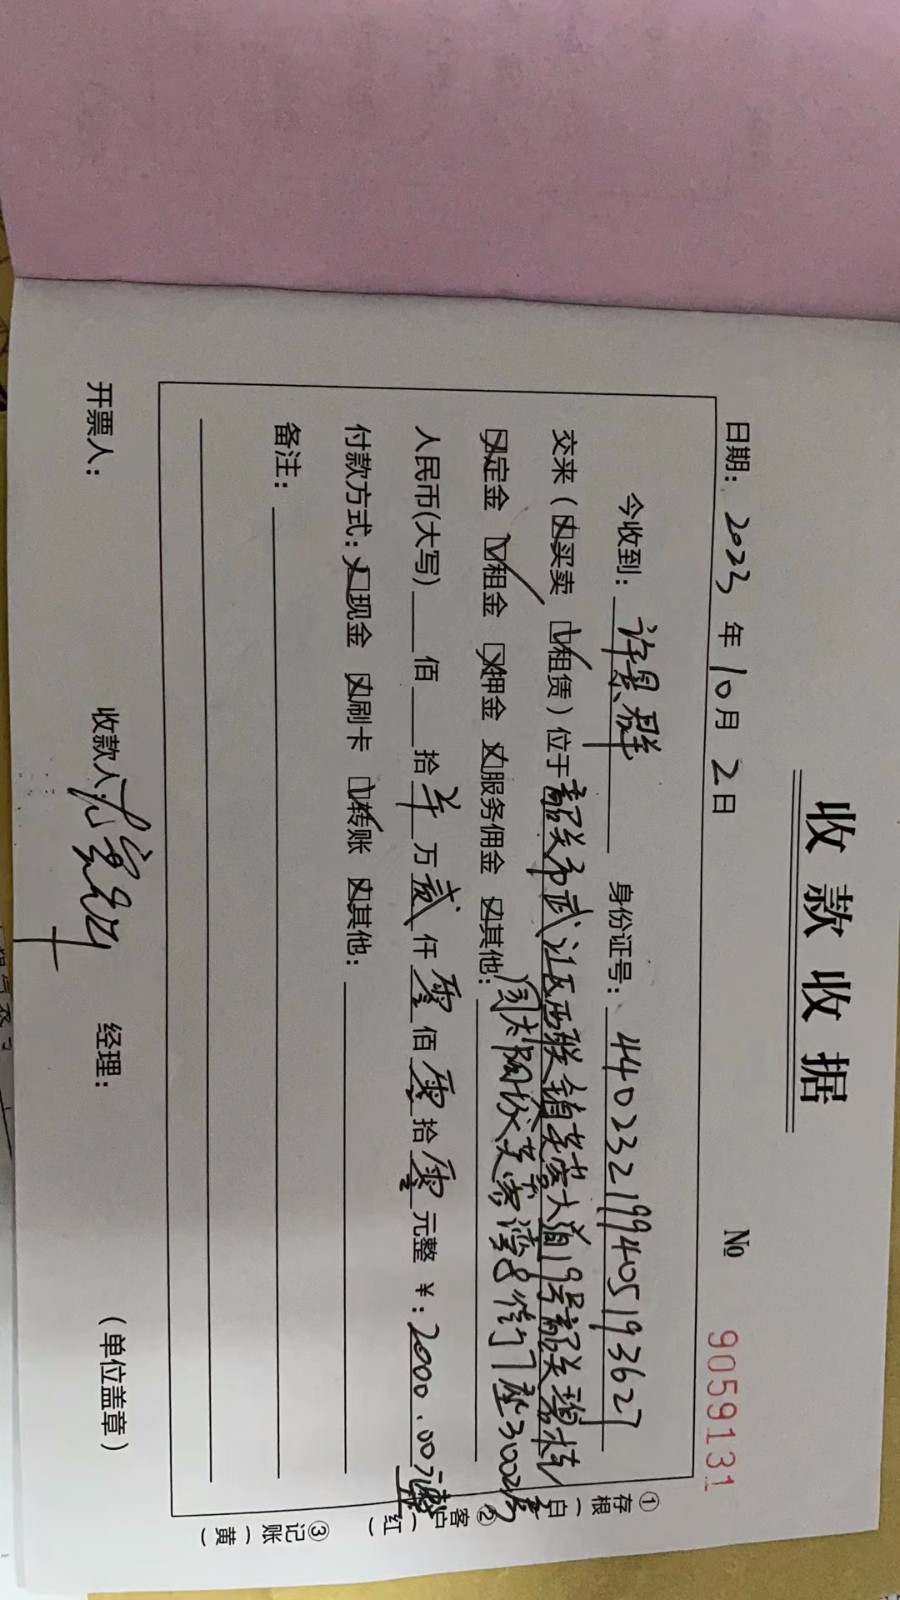 收款收据
№ 9059131
日期：2023年10月2日
今收到：许景群 身份证号：440232199405193627
交来（☒买卖 ☑租赁）位于韶关市武江区西联镇芙蓉大道19号韶关碧桂
☒定金 ☑租金 ☒押金 ☒服务佣金 ☒其他：园太阳城芙蓉湾8街7座3002房
人民币(大写) 佰 拾 万贰仟零佰零拾零元整 ￥：2000.00元整
付款方式：☒现金 ☒刷卡 ☑转账 ☒其他：
备注：
开票人： 收款人 经理： （单位盖章）
①存根（白） ②客户（红） ③记账（黄）